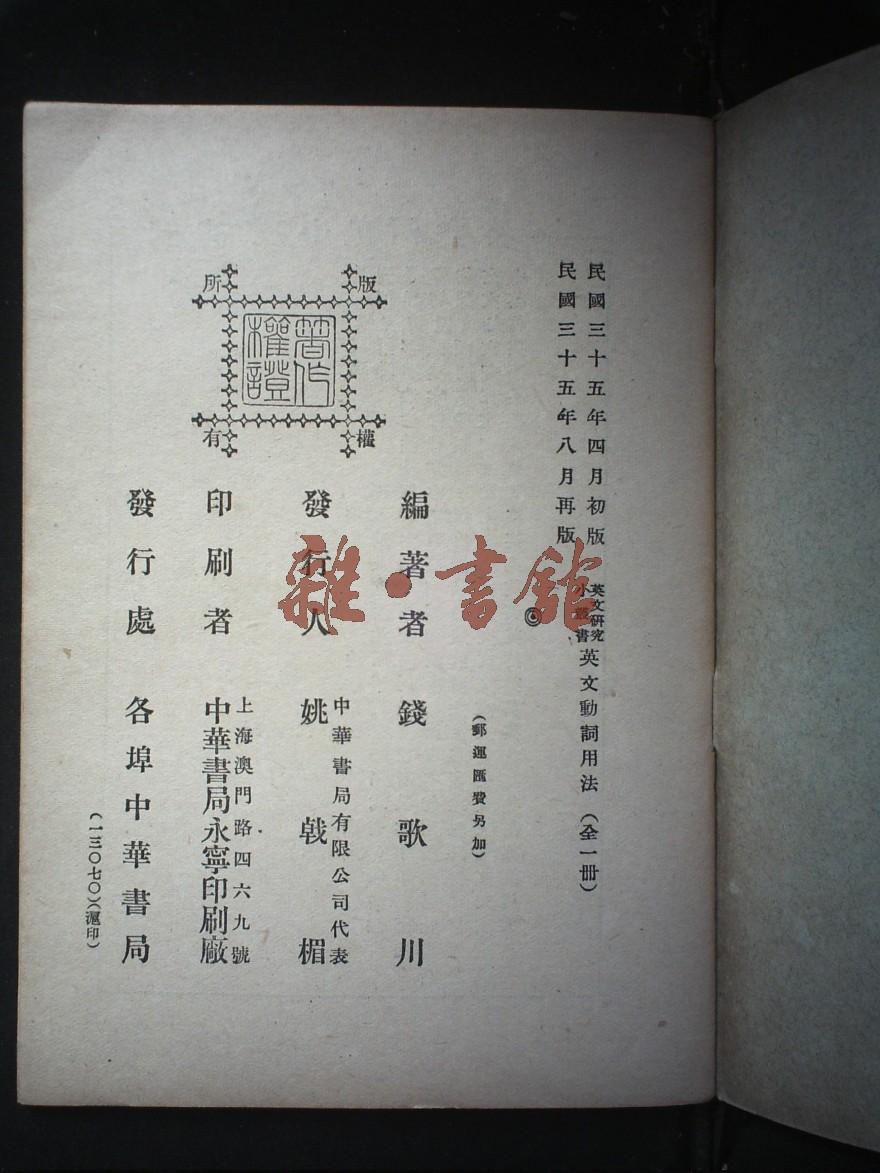 民國三十五年四月初版
民國三十五年八月再版
英文研究
小叢書
英文動詞用法(全一册)
◎
(郵運匯費另加)
編著者 錢歌川
中華書局有限公司代表
發行人 姚戟楣
上海澳門路四六九號
印刷者 中華書局永寧印刷廠
發行處 各埠中華書局
(一三〇七〇)(滬印)
版權所有
著作權證
雜·書館